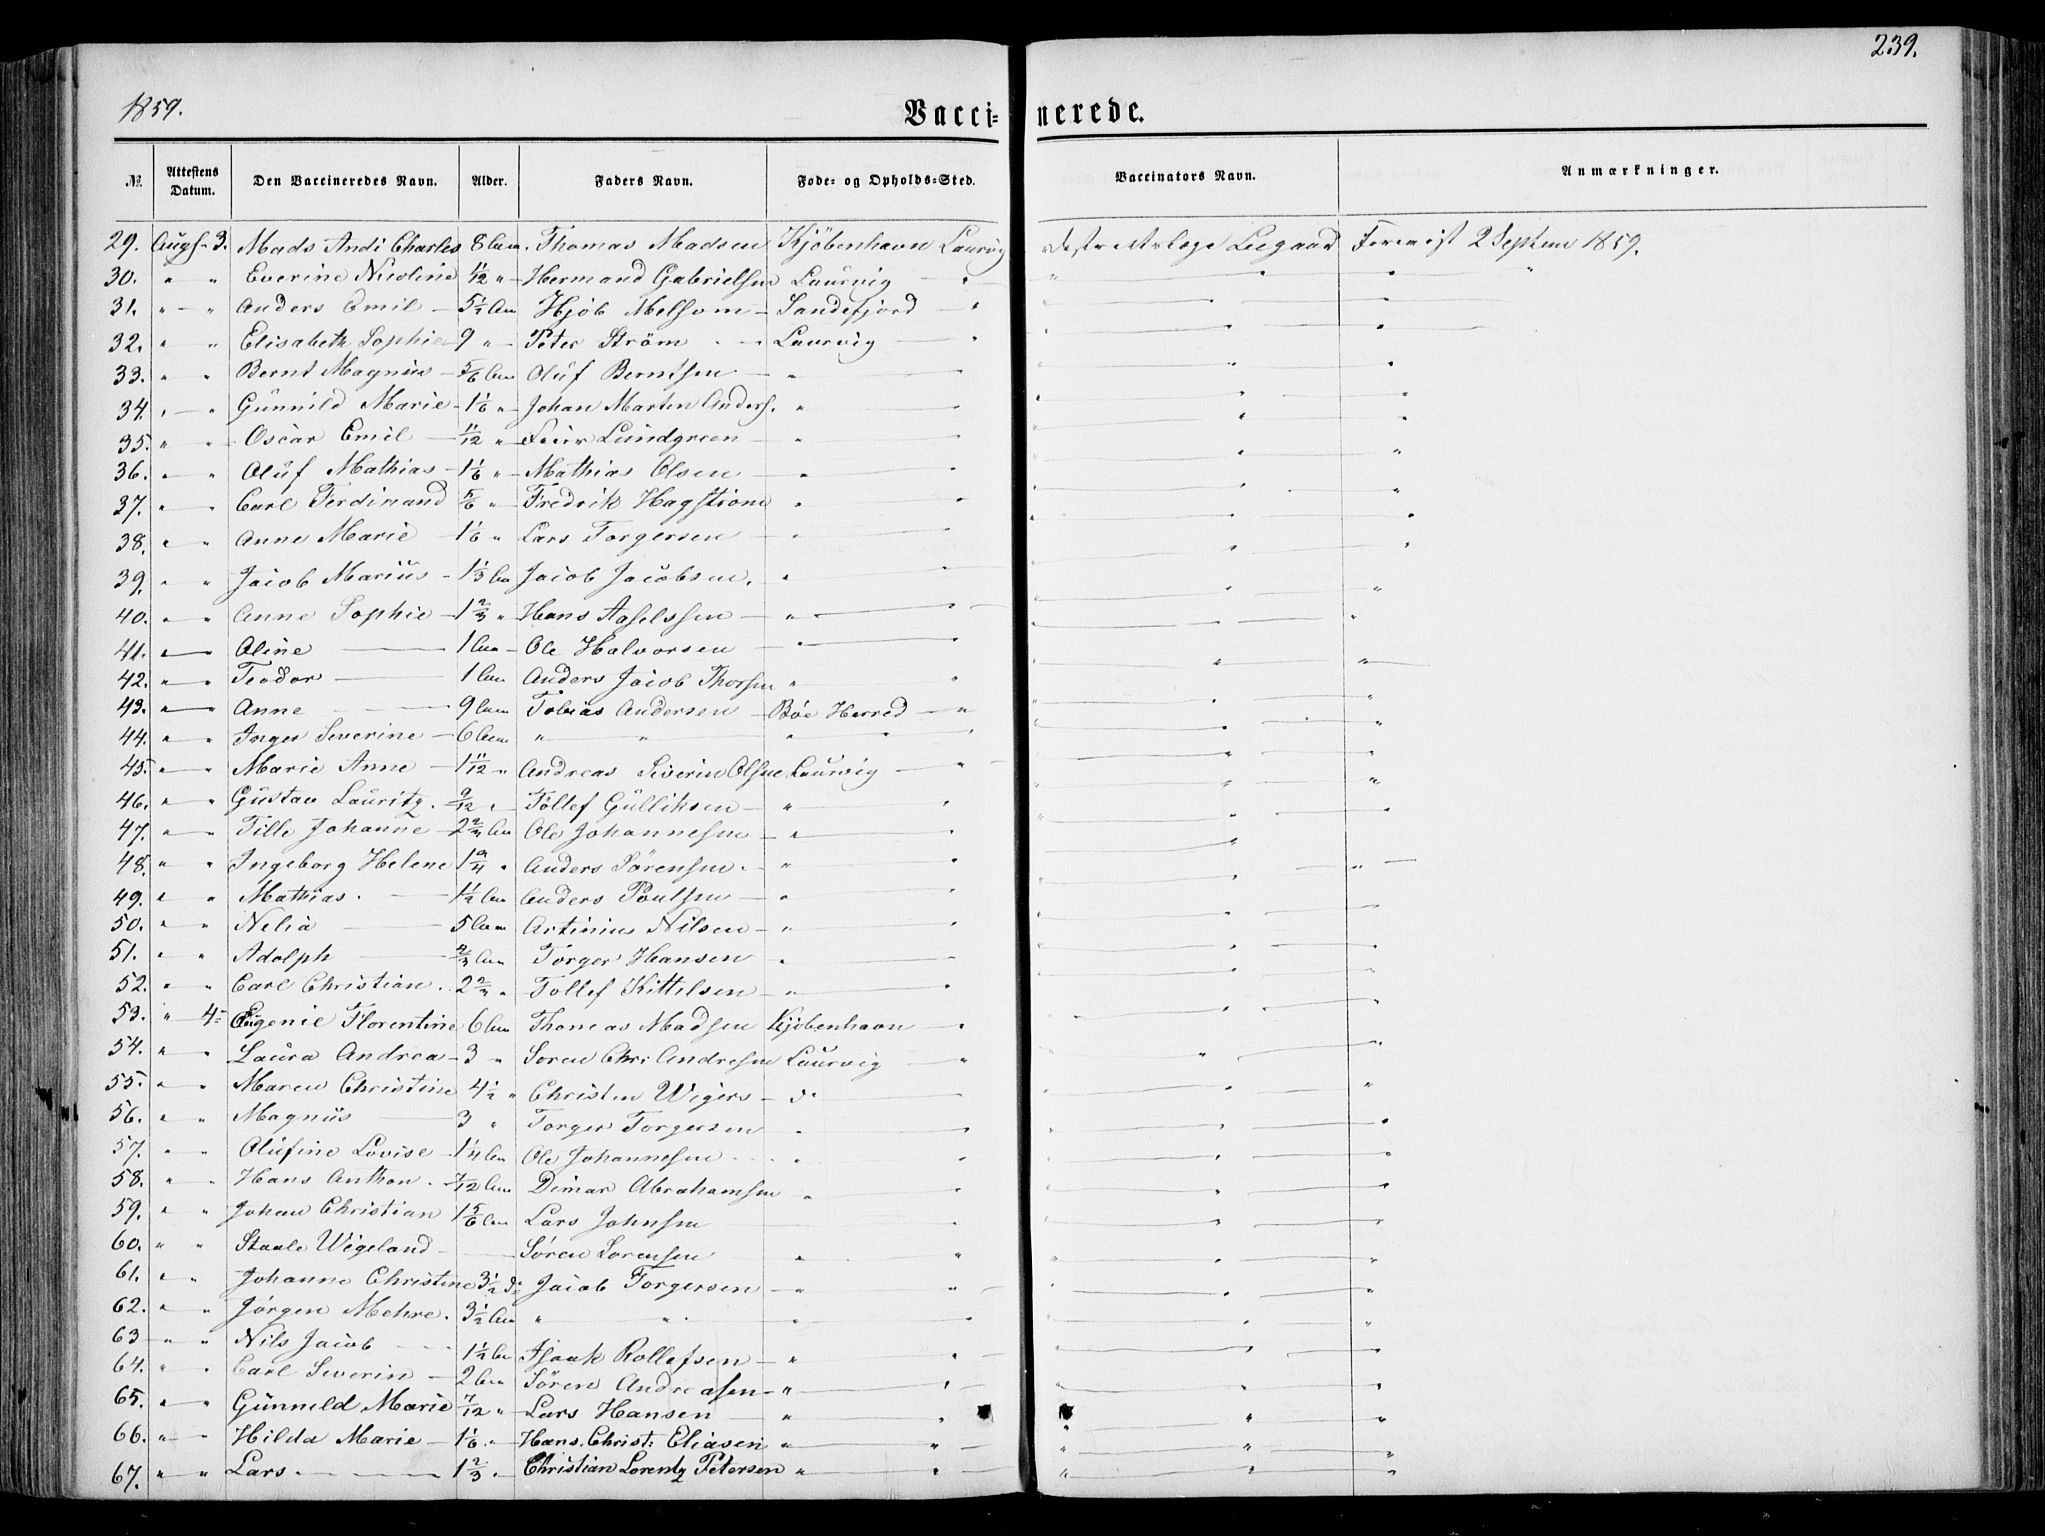 239.
1859.
Vacci= nerede.
№ Attestens Datum. Den Vaccineredes Navn. Alder. Faders Navn. Føde- og Opholds-Sted. Vaccinators Navn. Anmærkninger.
29. Augs. 3. Mads Charles 8 Thomas Madsen Kjöbenhavn Laurvig 2 Septem 1859.
30. " " Everine Nicoline 1/12 " Hermand Gabrielsen Laurvig "
31. " " Anders Emil 5½ Melsom Sandefjord "
32. " " Elisabeth Sophie 9 " Peter Ström Laurvig "
33. " " Bernt Magnus 5/6 Oluf Berntsen " "
34. " " Gunnild Marie 1 1/6 " Johan Marten Anders. " "
35. " " Oscar Emil 11/12 " Lundgreen " "
36. " " Oluf Mathias 1 1/6 " Mathias Olsen " "
37. " " Carl Ferdinand 5/6 " Fredrik Hagström " "
38. " " Anne Marie 1 1/6 " Lars Torgersen " "
39. " " Jacob Marius 1 1/3 Jacob Jacobsen. " "
40. " " Anne Sophie 1 2/3 " Hans " "
41. " " Oline 1 Ole Halvorsen " "
42. " " Teodor 1 Anders Jacob Thorsen " "
43. " " Anne 9 Tobias Andersen Böe Herred "
44. " " Inger Severine 6 " " " " "
45. " " Marie Anne 1 11/12 " Andreas Severin Olsen Laurvig "
46. " " Gustav Lauritz. 9/12 " Tollef Gulliksen " "
47. " " Tille Johanne 2 Ole Johannesen " "
48. " " Ingeborg Helene 1 " Anders Sörensen. " "
49. " " Mathias. 1½ Anders Poulsen " "
50. " " Nelia 5 Artinius Nilsen " "
51. " " Adolph Torger Hansen " "
52. " " Carl Christian. 2 " Tollef Kittelsen " "
53. " 4 Eugenie Florentine 6 Thomas Madsen Kjöbenhavn "
54. " " Laura Andrea 3 " Soren Chr: Andresen Laurvig "
55. " " Maren Christine 4½ " Christen Wigers "
56. " " Magnus 3 " Torger Torgersen " "
57. " " Olufine Lovise 1¼ Ole Johannesen " "
58. " " Hans Anthon. 7/12 Abrahamsen " "
59. " " Johan Christian 1 5/6 Lars Johnsen "
60. " " Staale Wigeland Sören Sorensen " "
61. " " Johanne Christine 3½ Jacob Torgersen " "
62. " " Jörgen Mehre. 3½ " " " "
63 " " Nils Jacob 1½ Isaak Rollefsen " "
64. " " Carl Severin 2 Sören Andreasen " "
65. " " Gunneld Marie 7/12 " Lars Hansen " "
66. " " Hilda Marie 1 1/6 " Hans Christ: Eliasen " "
67. " " Lars. 1 2/3 " Christian Lorentz Petersen " "